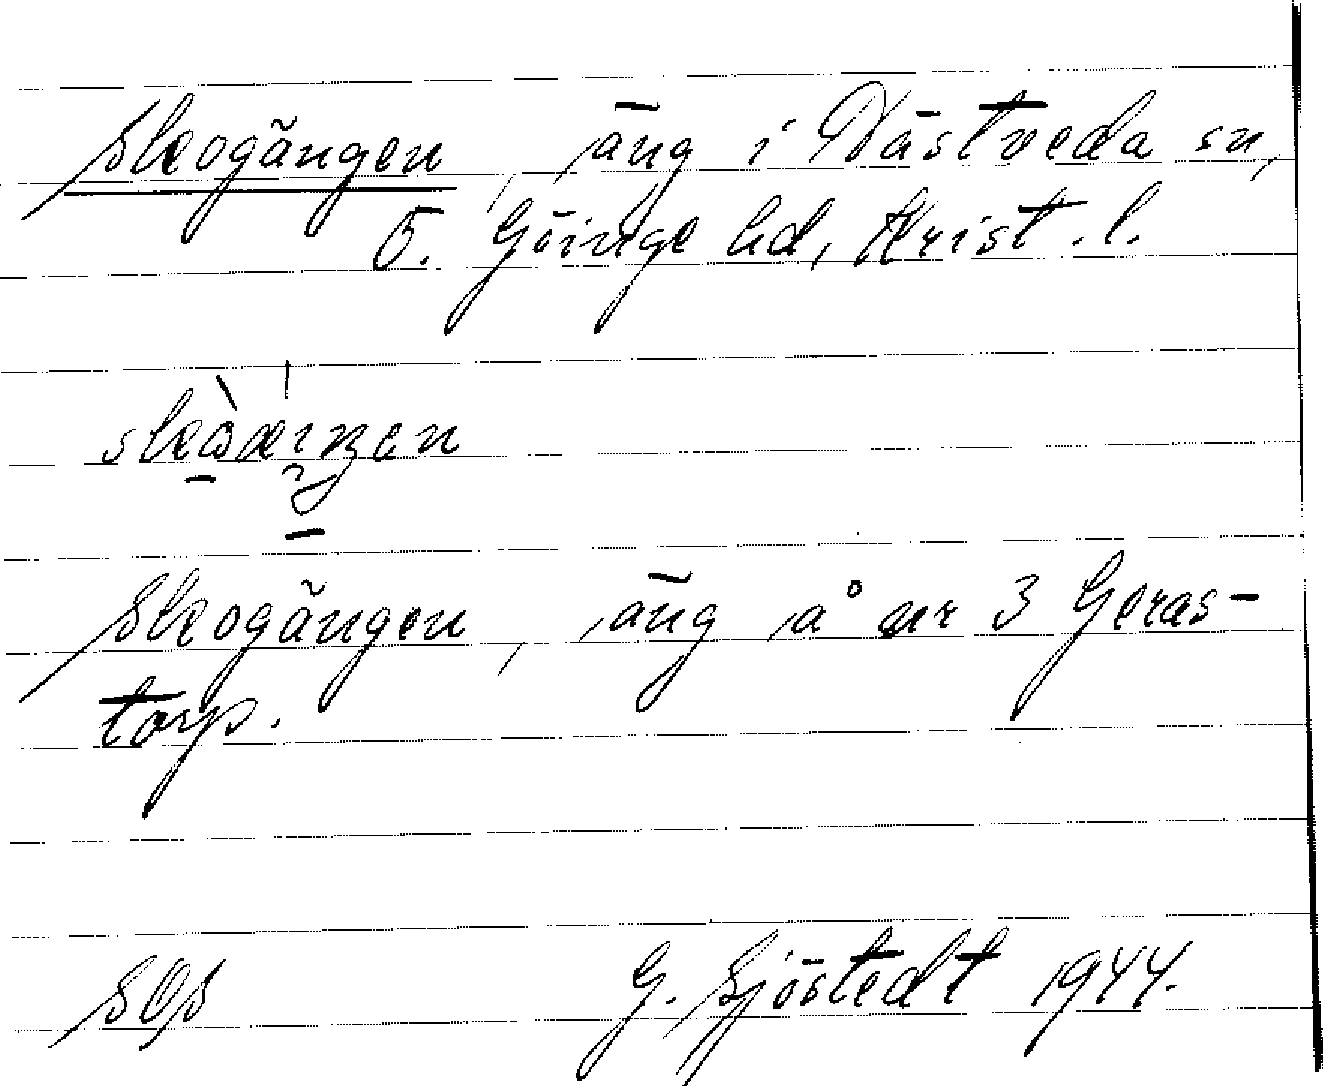 Skogängen, äng i Hästveda sn,
Ö. Göinge hd, Krist. l.
Skogängen, äng å nr 3 Geras-
torp.
G. Sjöstedt 1944.